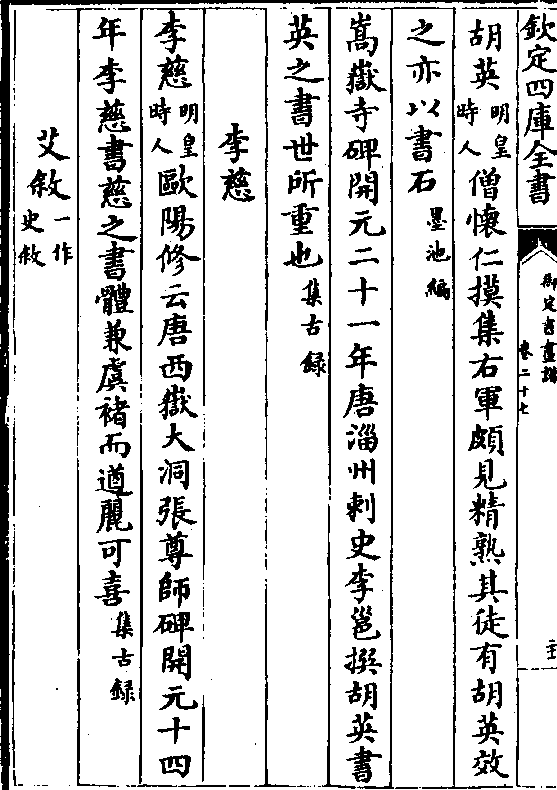 欽定四庫全書
御定書畫譜
卷二十七
胡英明皇時人僧懷仁摸集右軍頗見精熟其徒有胡英效
之亦以書石墨池編
嵩嶽寺碑開元二十一年唐淄州刺史李邕撰胡英書
英之書世所重也集古録
李慈
李慈明皇時人歐陽修云唐西嶽大洞張尊師碑開元十四
年李慈書慈之書體兼虞褚而遒麗可喜集古録
艾敘一作史敘